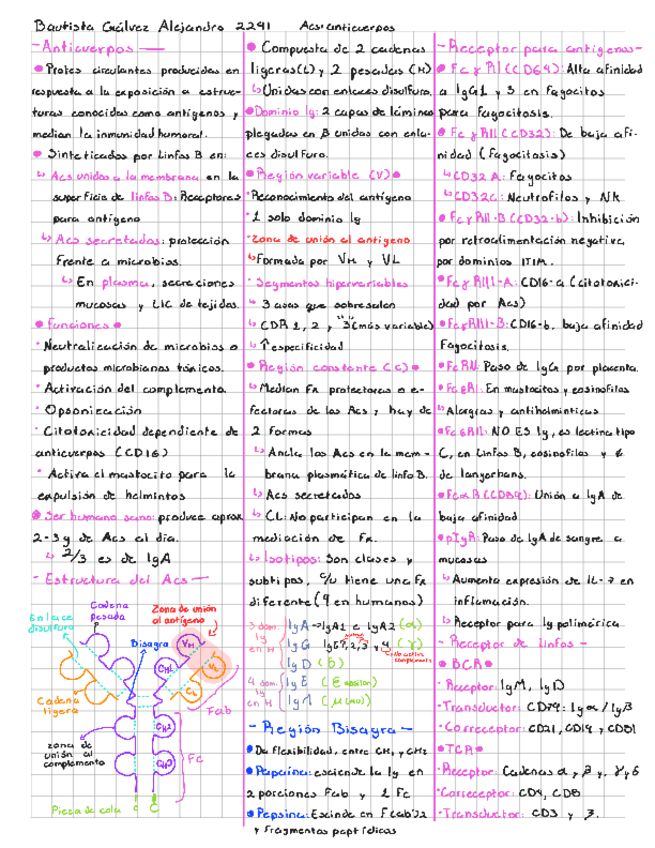 Bautista Gálvez Alejandro 2241 Acs: anticuerpos
- Anticuerpos -
• Protes circulantes producidas en
respuesta a la exposición a estruc-
turas conocidas como antígenos y
median la inmunidad humoral.
• Sintetizados por Linfos B en:
↳ Acs unidos a la membrana en la
superficie de linfos B: Receptores
para antígeno
↳ Acs secretados: protección
frente a microbios.
↳ En plasma, secreciones
mucosas y LIC de tejidos.
• Funciones •
· Neutralización de microbios o
productos microbianos tóxicos.
· Activación del complemento
· Opsonización
· Citotoxicidad dependiente de
anticuerpos (CD16)
· Activa el mastocito para la
expulsión de helmintos
• Ser humano sano: produce aprox
2-3g de Acs al día.
↳ 2/3 es de IgA
- Estructura del Acs -
Cadena
pesada
Zona de unión
al antígeno
Enlace
disulfuro
Bisagra
VH
CH1
VL
CL
Cadena
ligera
Fab
CH2
zona de
unión al
complemento
CH3
Fc
Pieza de cola
• Compuesta de 2 cadenas
ligeras(L) y 2 pesadas (H)
↳ Unidas con enlaces disulfuro.
• Dominio Ig: 2 capas de láminas
plegadas en β unidas con enla-
ces disulfuro.
• Región variable (V) •
· Reconocimiento del antígeno
· 1 solo dominio Ig
· Zona de unión al antígeno
↳ Formada por VH y VL
· Segmentos hipervariables
↳ 3 asas que sobresalen
↳ CDR 1, 2 y "3"(más variable)
↳ ↑especificidad
• Región constante (C) •
↳ Median Fx protectoras o e-
fectoras de los Acs y hay de
2 formas
↳ Ancla los Acs en la mem-
brana plasmática de linfo B.
↳ Acs secretados
↳ CL: No participan en la
mediación de Fx.
↳ Isotipos: Son clases y
subtipos, c/u tiene una Fx
diferente (9 en humanos)
3 dom.
Ig
en H
IgA → IgA1 e IgA2 (α)
IgG
(γ)
IgD (δ)
4 dom.
Ig
en H
IgE (ε epsilon)
IgM (μ (mu))
- Región Bisagra -
• Da flexibilidad, entre CH1 y CH2
• Papaína: esciende la Ig en
2 porciones Fab y 1 Fc
• Pepsina: Escinde en F(ab')2
y fragmentos peptídicos
- Receptor para antígenos -
• Fc γ RI (CD64): Alta afinidad
a IgG1 y 3 en fagocitos
para fagocitosis.
• Fc γ RII (CD32): De baja afi-
nidad (fagocitosis)
↳ CD32 A: Fagocitos
↳ CD32C: Neutrofilos y NK
• Fc γ RII-B (CD32-b): Inhibición
por retroalimentación negativa
por dominios ITIM.
• Fc γ RIII-A: CD16-a (citotoxici-
dad por Acs)
• Fc γ RIII-B: CD16-b, baja afinidad
Fagocitosis.
• FcRN: Paso de IgG por placenta.
• FcεRI: En mastocitos y eosinofilos
↳ Alergias y antihelminticos
• FcεRII: NO ES Ig, es lectina tipo
C, en Linfos B, eosinofilos y
de langerhans.
• Fcα R (CD89): Unión a IgA de
baja afinidad
• pIgR: Paso de IgA de sangre a
mucosas
↳ Aumenta expresión de IL-7 en
inflamación.
↳ Receptor para Ig polimérica
- Receptor de linfos -
• BCR •
· Receptor: IgM, IgD
· Transductor: CD79: Igα / Igβ
· Correceptor: CD21, CD19 y CD81
• TCR •
· Receptor: Cadenas α y β, γ y δ
· Correceptor: CD4, CD8
· Transductor: CD3 y